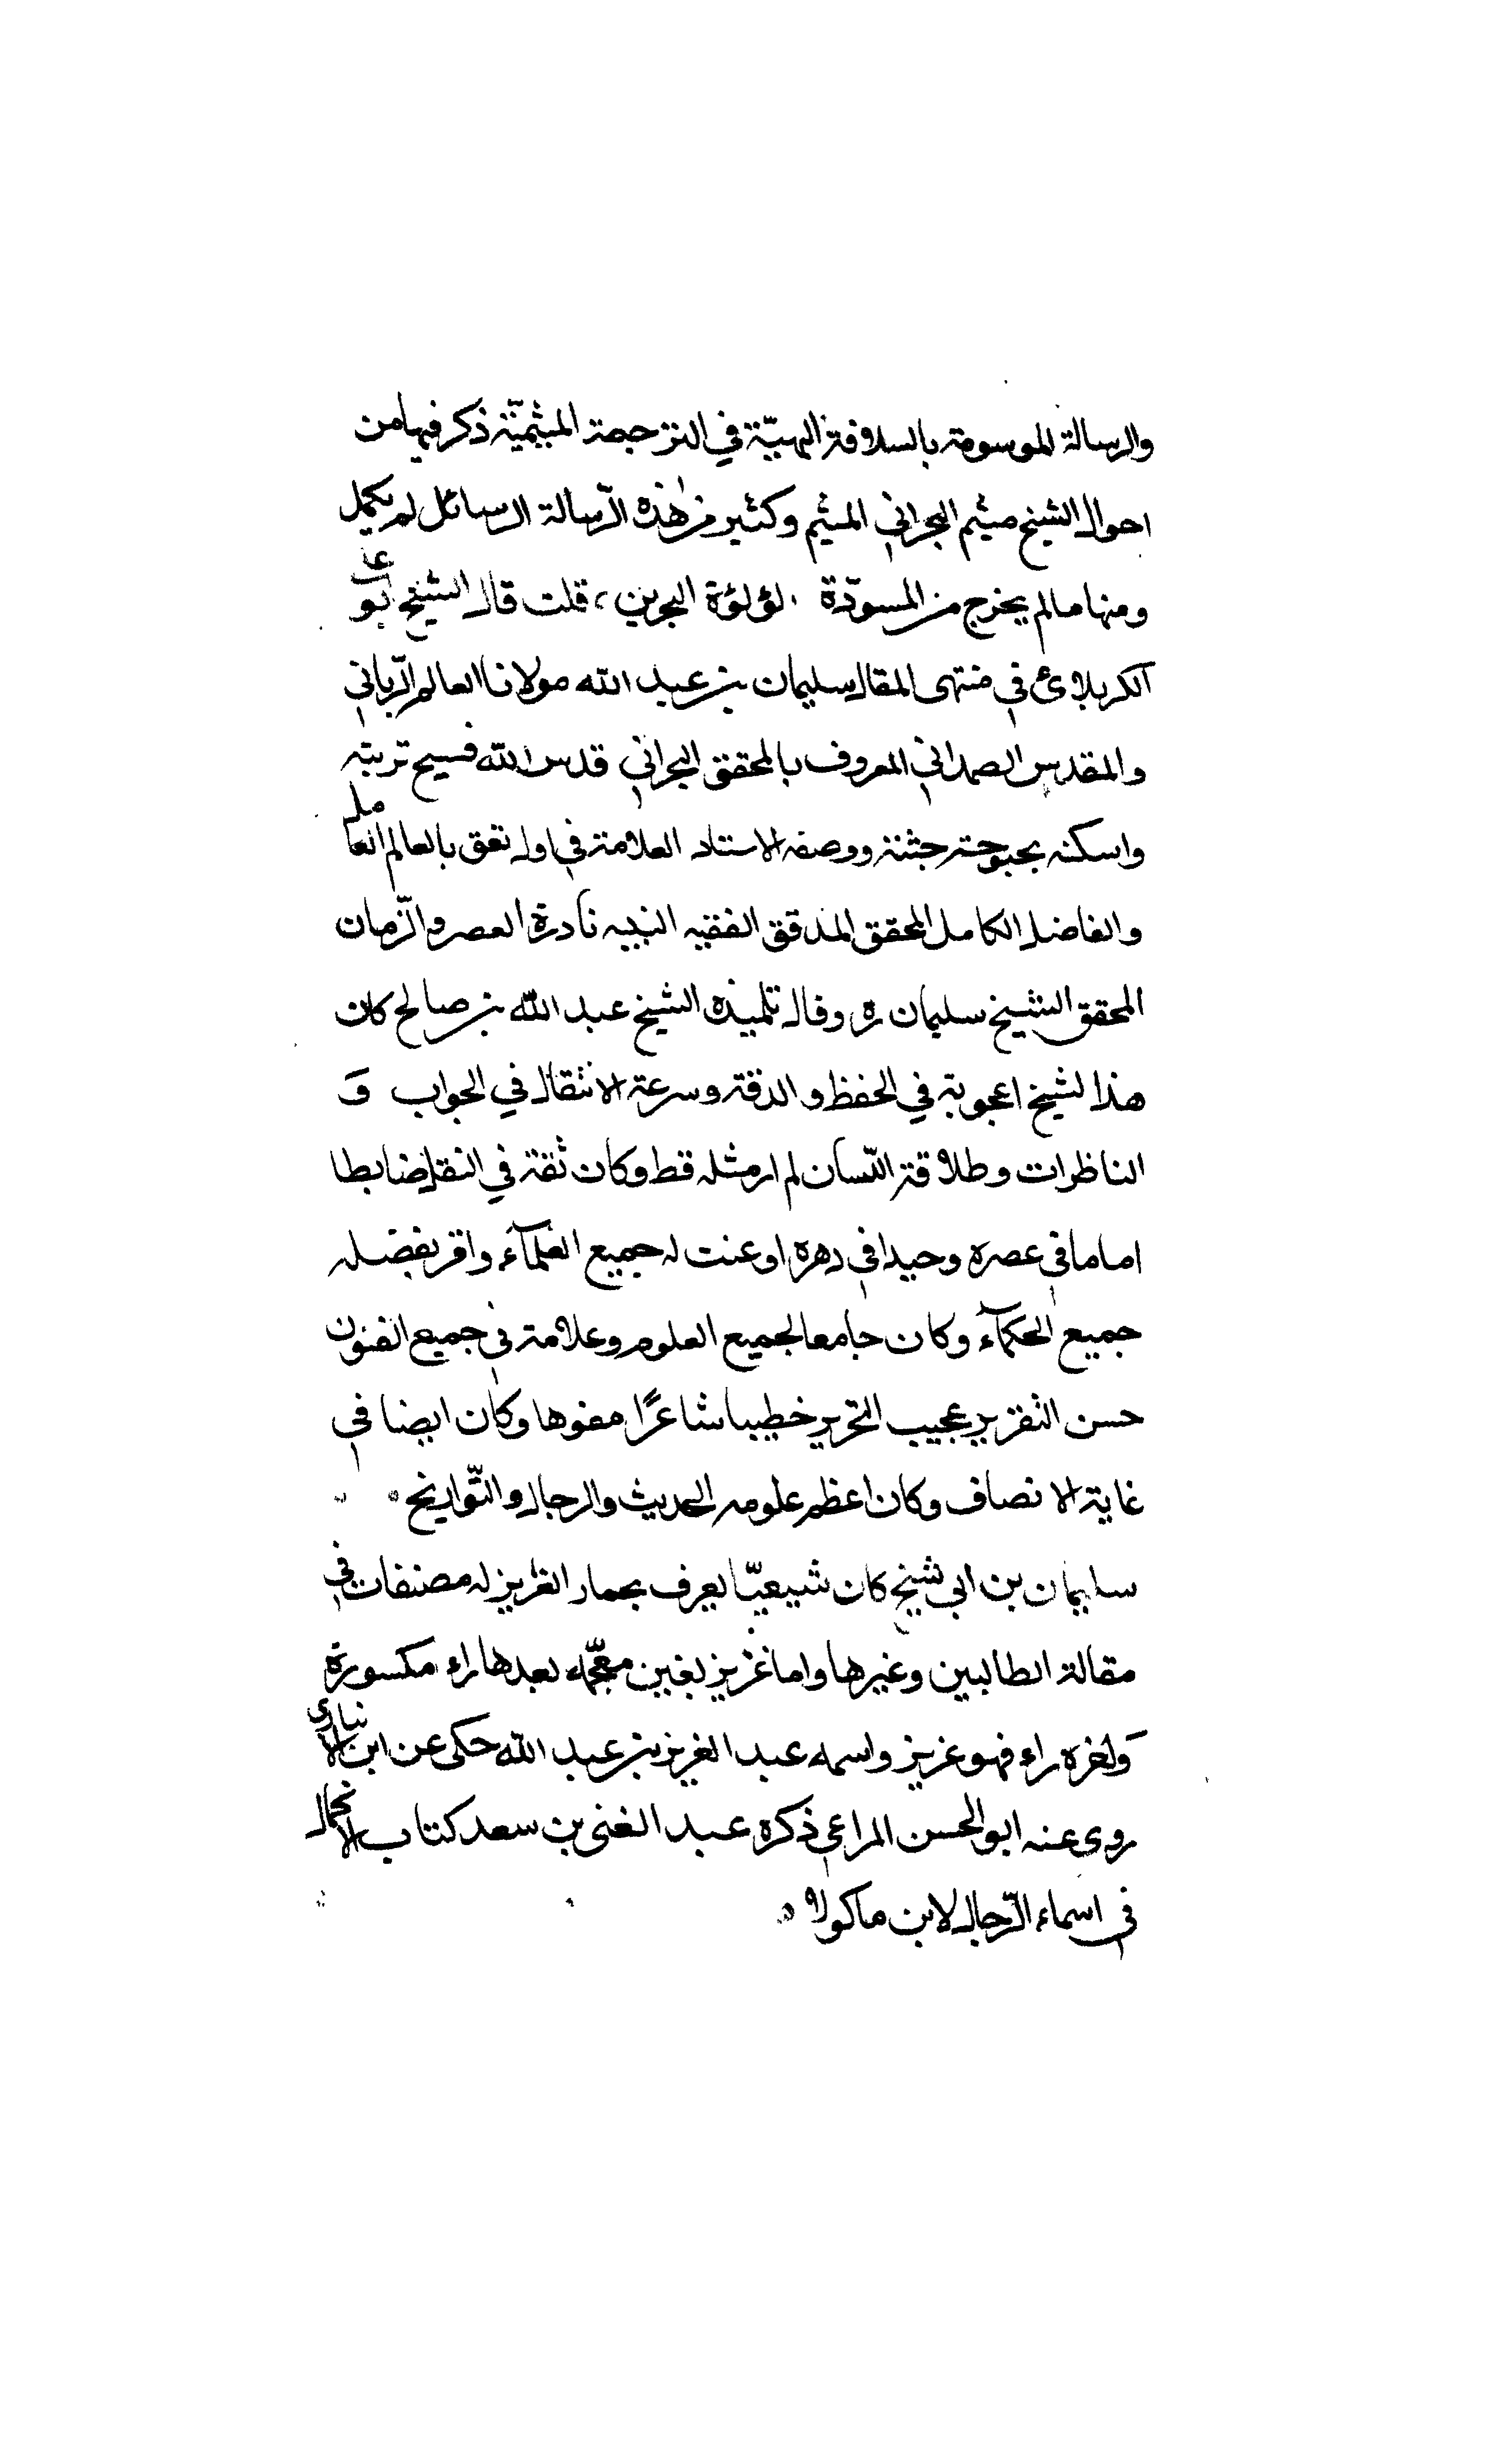 والرسالة الموسومة بالسلافة البهيّة في الترجمة الميثميّة ذكر فيها من
احوال الشيخ ميثم البحراني الميثم وكثير من هٰذه الرّسالة الرسائل لم يكمل
ومنها ما لم يخرج من المسوّدة لؤلؤة البحرين، قلت قال الشيخ ابو على
الكربلائ في منتهى المقال سليمان بن عبد الله مولانا العالم الرّباني
والمقدس الصمداني المعروف بالمحقق البحراني قدس الله فسيح تربته
واسكنه بحبوحة جنته ووصفه الاستاد العلامة في اول تعق بالعالم العامل
والفاضل الكامل المحقق المدقق الفقيه النبيه نادرة العصر والزّمان
المحقق الشيخ سليمان ره وقال تلميذه الشيخ عبد اللّه بن صالح كان
هذا لشيخ اعجوبة في الحفظ و الدقة وسرعة الانتقال في الجواب وَ
الناظرات وطلاقة اللّسان لم ار مثله قط وكان ثقة في النقل ضابطا
اماما في عصره وحيدا في دهره اوعنت له جميع العلمآء واقر بفضله
جميع الحكمآء وكان جامعا لجميع العلوم وعلامة في جميع الفنون
حسن التقرير عجيب التحرير خطيبا شاعرًا مفوها وكان ايضا في
غاية الانصاف وكان اعظم علومه الحديث والرجال والتّواريخ
سليمان بن ابى شيخ كان شيعيّا يعرف بحمار الغزيز له مصنفات في
مقالة الطالبين وغيرها واما غزيز بغين معجّمه بعدها راء مكسورة
وَلغره راء فهو غزيز واسمه عبد الغزيز بن عبد اللّه حكى عن ابن الانبارى
روى عنه ابو الحسن المراعى ذكره عبد الغنى بن سعد كتاب الاكمال
في اسماء الرّجال لابن ماكولا